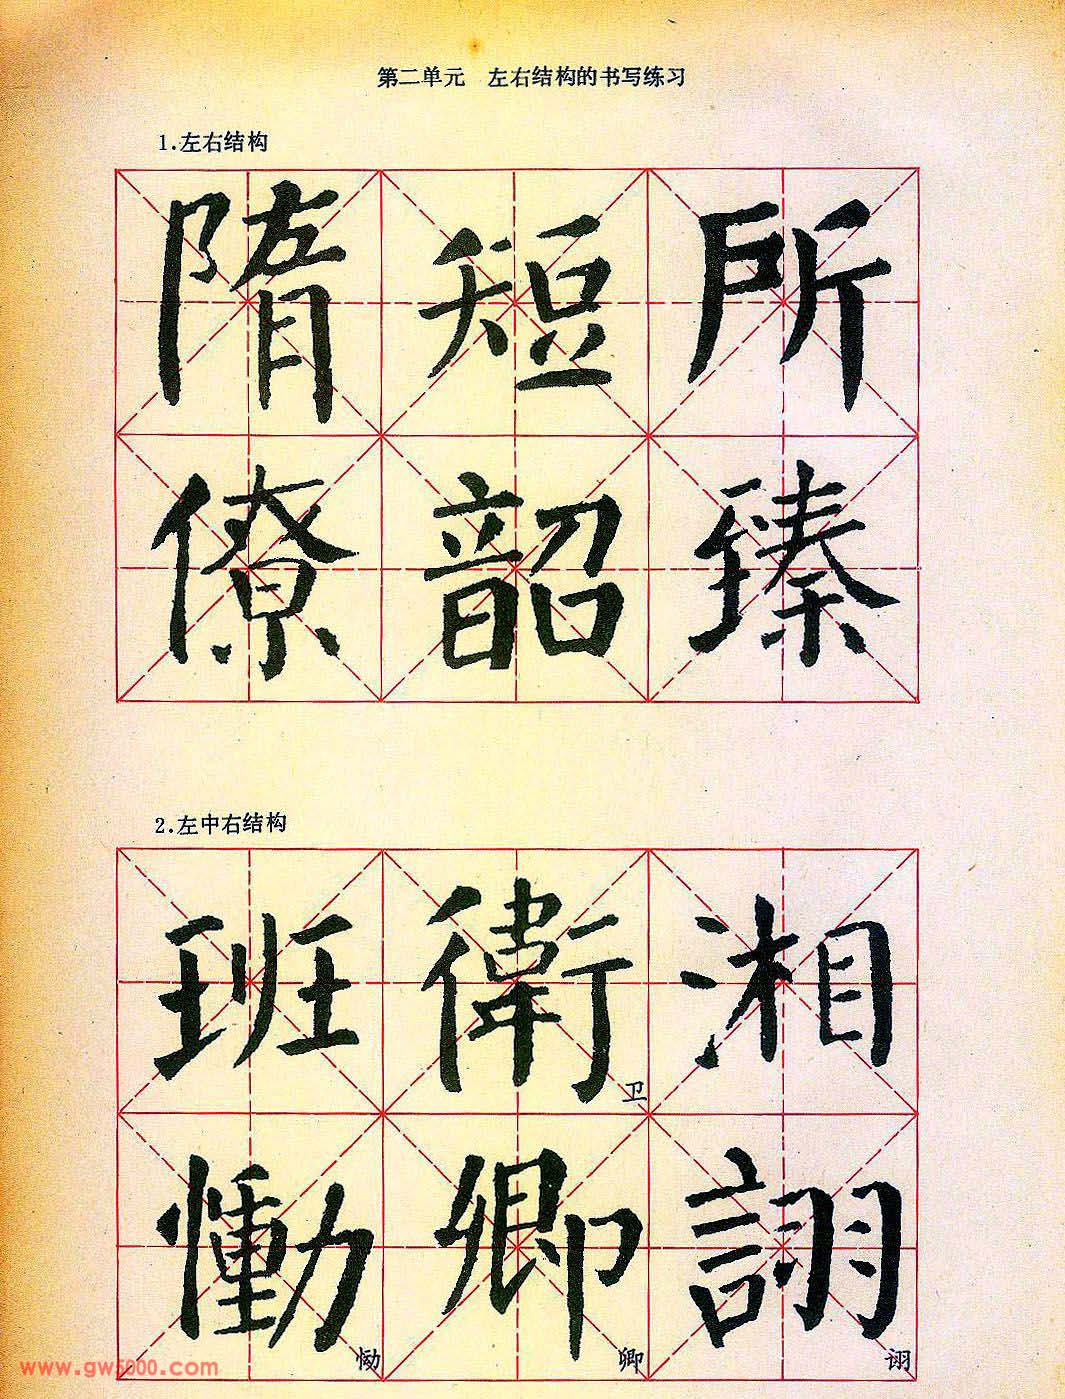 第二单元　左右结构的书写练习
1.左右结构
隋短所
僚韶臻
2.左中右结构
班衛湘
卫
慟卿詡
恸卿诩
www.gw5000.com